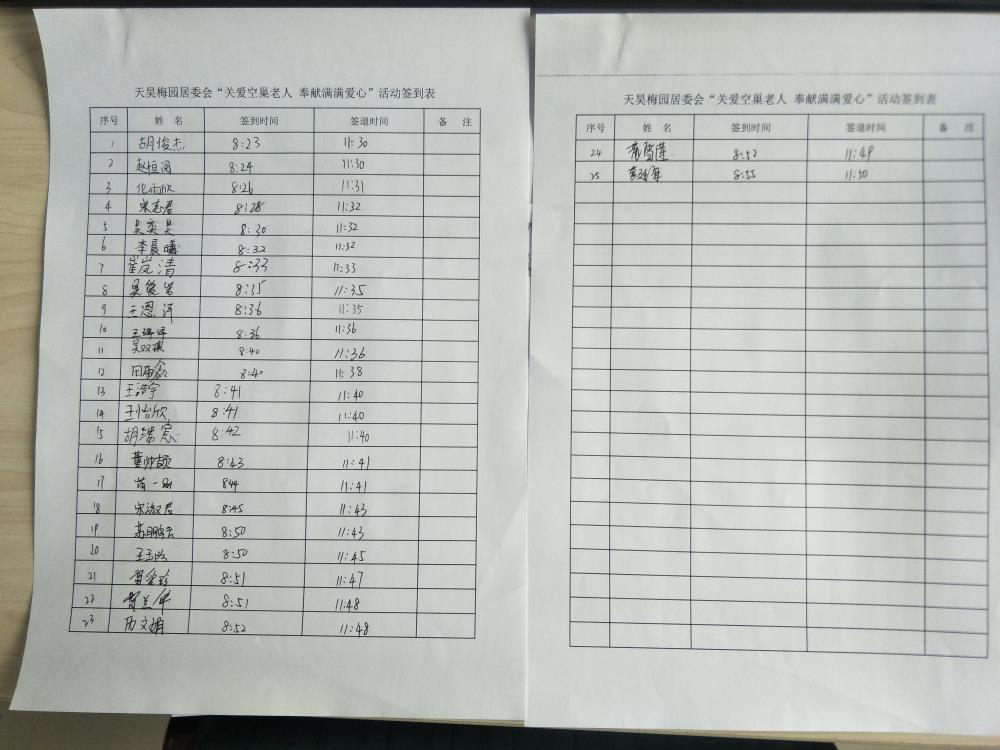 天昊梅园居委会“关爱空巢老人 奉献满满爱心”活动签到表
序号 姓 名 签到时间 签退时间 备 注
1 胡俊杰 8:23 11:30
2 赵恒润 8:24 11:30
3 8:26 11:31
4 宋志君 8:28 11:32
5 吴奕昊 8:30 11:32
6 李晨曦 8:32 11:32
7 崔岚清 8:33 11:33
8 吴俊岩 8:35 11:35
9 王恩泽 8:36 11:35
10 8:36 11:36
11 吴双琪 8:40 11:36
12 8:40 11:38
13 王浩宇 8:41 11:40
14 王怡欣 8:41 11:40
15 8:42 11:40
16 董帅颉 8:43 11:41
17 8:44 11:41
18 宋淑君 8:45 11:43
19 苏鹏云 8:50 11:43
20 8:50 11:45
21 8:51 11:47
22 8:51 11:48
23 历文娟 8:52 11:48
天昊梅园居委会“关爱空巢老人 奉献满满爱心”活动签到表
序号 姓 名 签到时间 签退时间 备 注
24 8:52 11:49
25 8:55 11:50